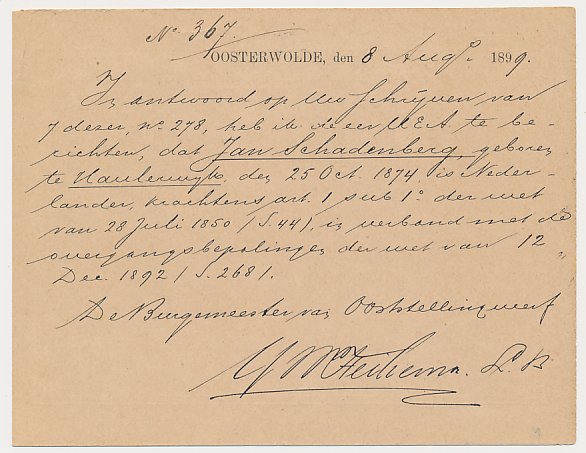 No. 367.
OOSTERWOLDE, den 8 Augs. 1899.
In antwoord op Uw schrijven van
7 dezer, no. 278, heb ik de eer U.E.A. te be-
richten, dat Jan Schadenberg, geboren
te Haulerwijk, den 25 Oct. 1874 is Neder-
lander, krachtens art. 1 sub 1o. der wet
van 28 Juli 1850 (S. 44), in verband met de
overgangsbepalingen der wet van 12
Dec. 1892 (S. 268).
De Burgemeester van Ooststellingwerf
L. B.